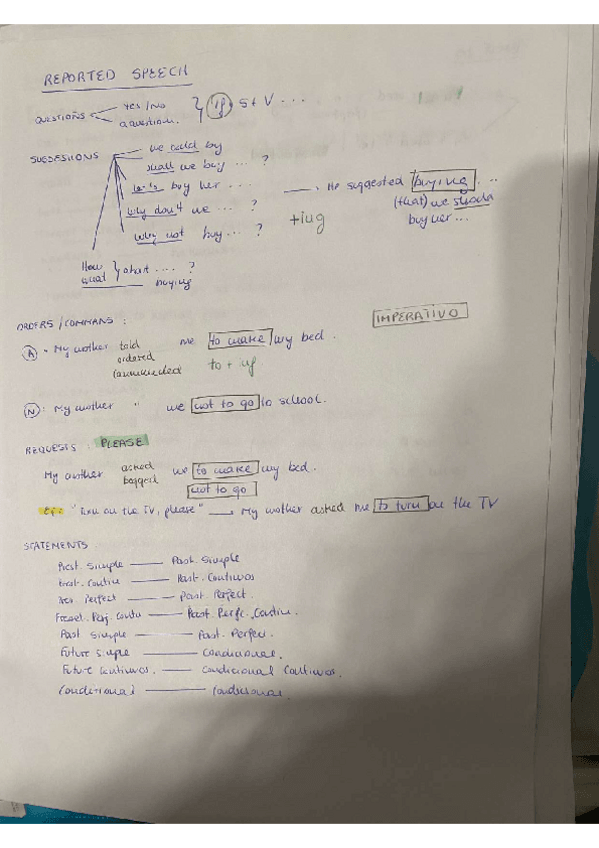 REPORTED SPEECH
QUESTIONS yes/no
a question. } (if) S+V ...
SUGGESTIONS we could by
shall we buy ... ?
let's buy her ... He suggested buying ...
why don't we ... ? +ing (that) we should
why not buy ... ? buy her ...
How
what } about .... ?
buying
ORDERS / COMMANS : IMPERATIVO
(A) - My mother told me to make my bed.
ordered to + inf
commanded
(N): My mother " me not to go to school.
REQUESTS : PLEASE
My mother asked me to make my bed.
begged not to go
Ej: "Turn on the TV, please" My mother asked me to turn on the TV
STATEMENTS
Prest. Simple Past. Simple
Prest. Continu Past. Continuos
Pres. Perfect Past. Perfect.
Present. Perf. Contu Past. Perfc. Continu.
Past Simple Past. Perfec.
Future Simple Condicional.
Future Continuos. Condicional Continuos.
Conditional Condicional.